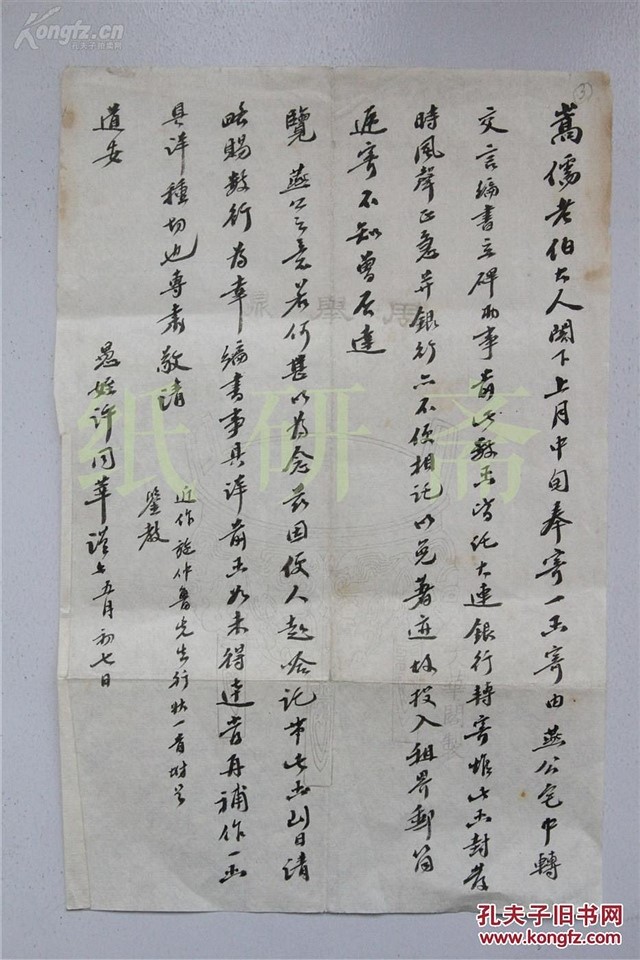 Kongfz.cn
孔夫子旧书网
③
嵩儒老伯大人阁下上月中旬奉寄一函寄由燕公宅中轉
交言編書立碑兩事前此黩函皆托大連銀行轉寄惟此函封發
時風聲正急并銀行亦不便相託以免著迹故投入租界郵筒
逕寄不知曾否達
覽燕公之意若何甚以為念茲因便人赴哈託带此函到日請
略賜數行為幸編書事具詳前函如未得達當再補作一函
具詳種切也專肅敬請
道安
近作施仲魯先生行狀一首附呈
鑒教
愚姪許同莘謹上五月初七日
纸研斋
孔夫子旧书网
www.kongfz.com